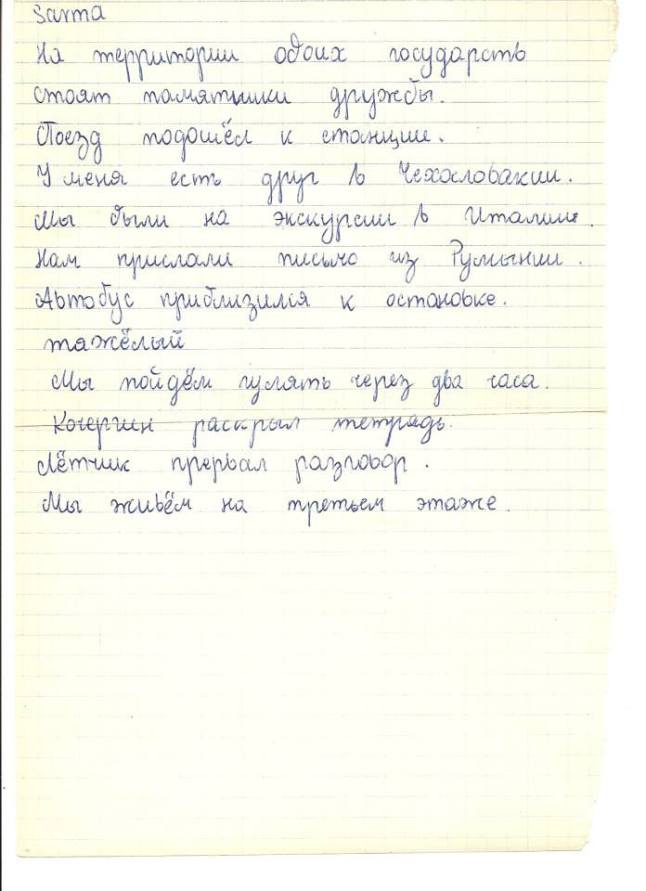 зата
На территории обоих государств
стоят памятники дружбы.
Поезд подошёл к станции.
У меня есть друг в Чехословакии.
Мы были на экскурсии в Италии.
Нам прислали письмо из Румынии.
Автобус приблизился к остановке.
тяжёлый
Мы пойдём гулять через два часа.
Кочергин раскрыл тетрадь.
Лётчик прервал разговор.
Мы живём на третьем этаже.